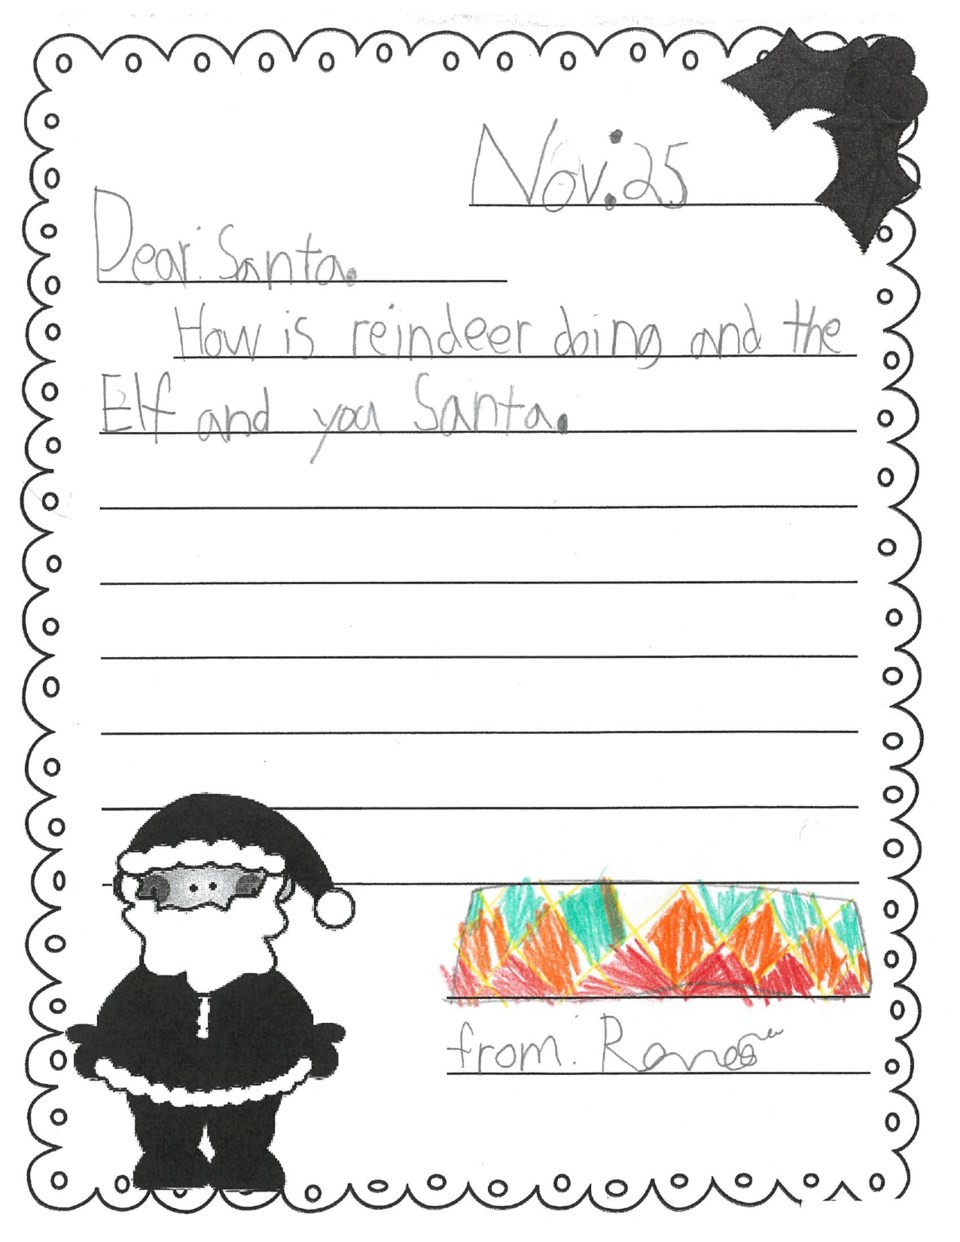 Nov. 25
Dear. Santa.
How is reindeer doing and the
Elf and you Santa.
from: